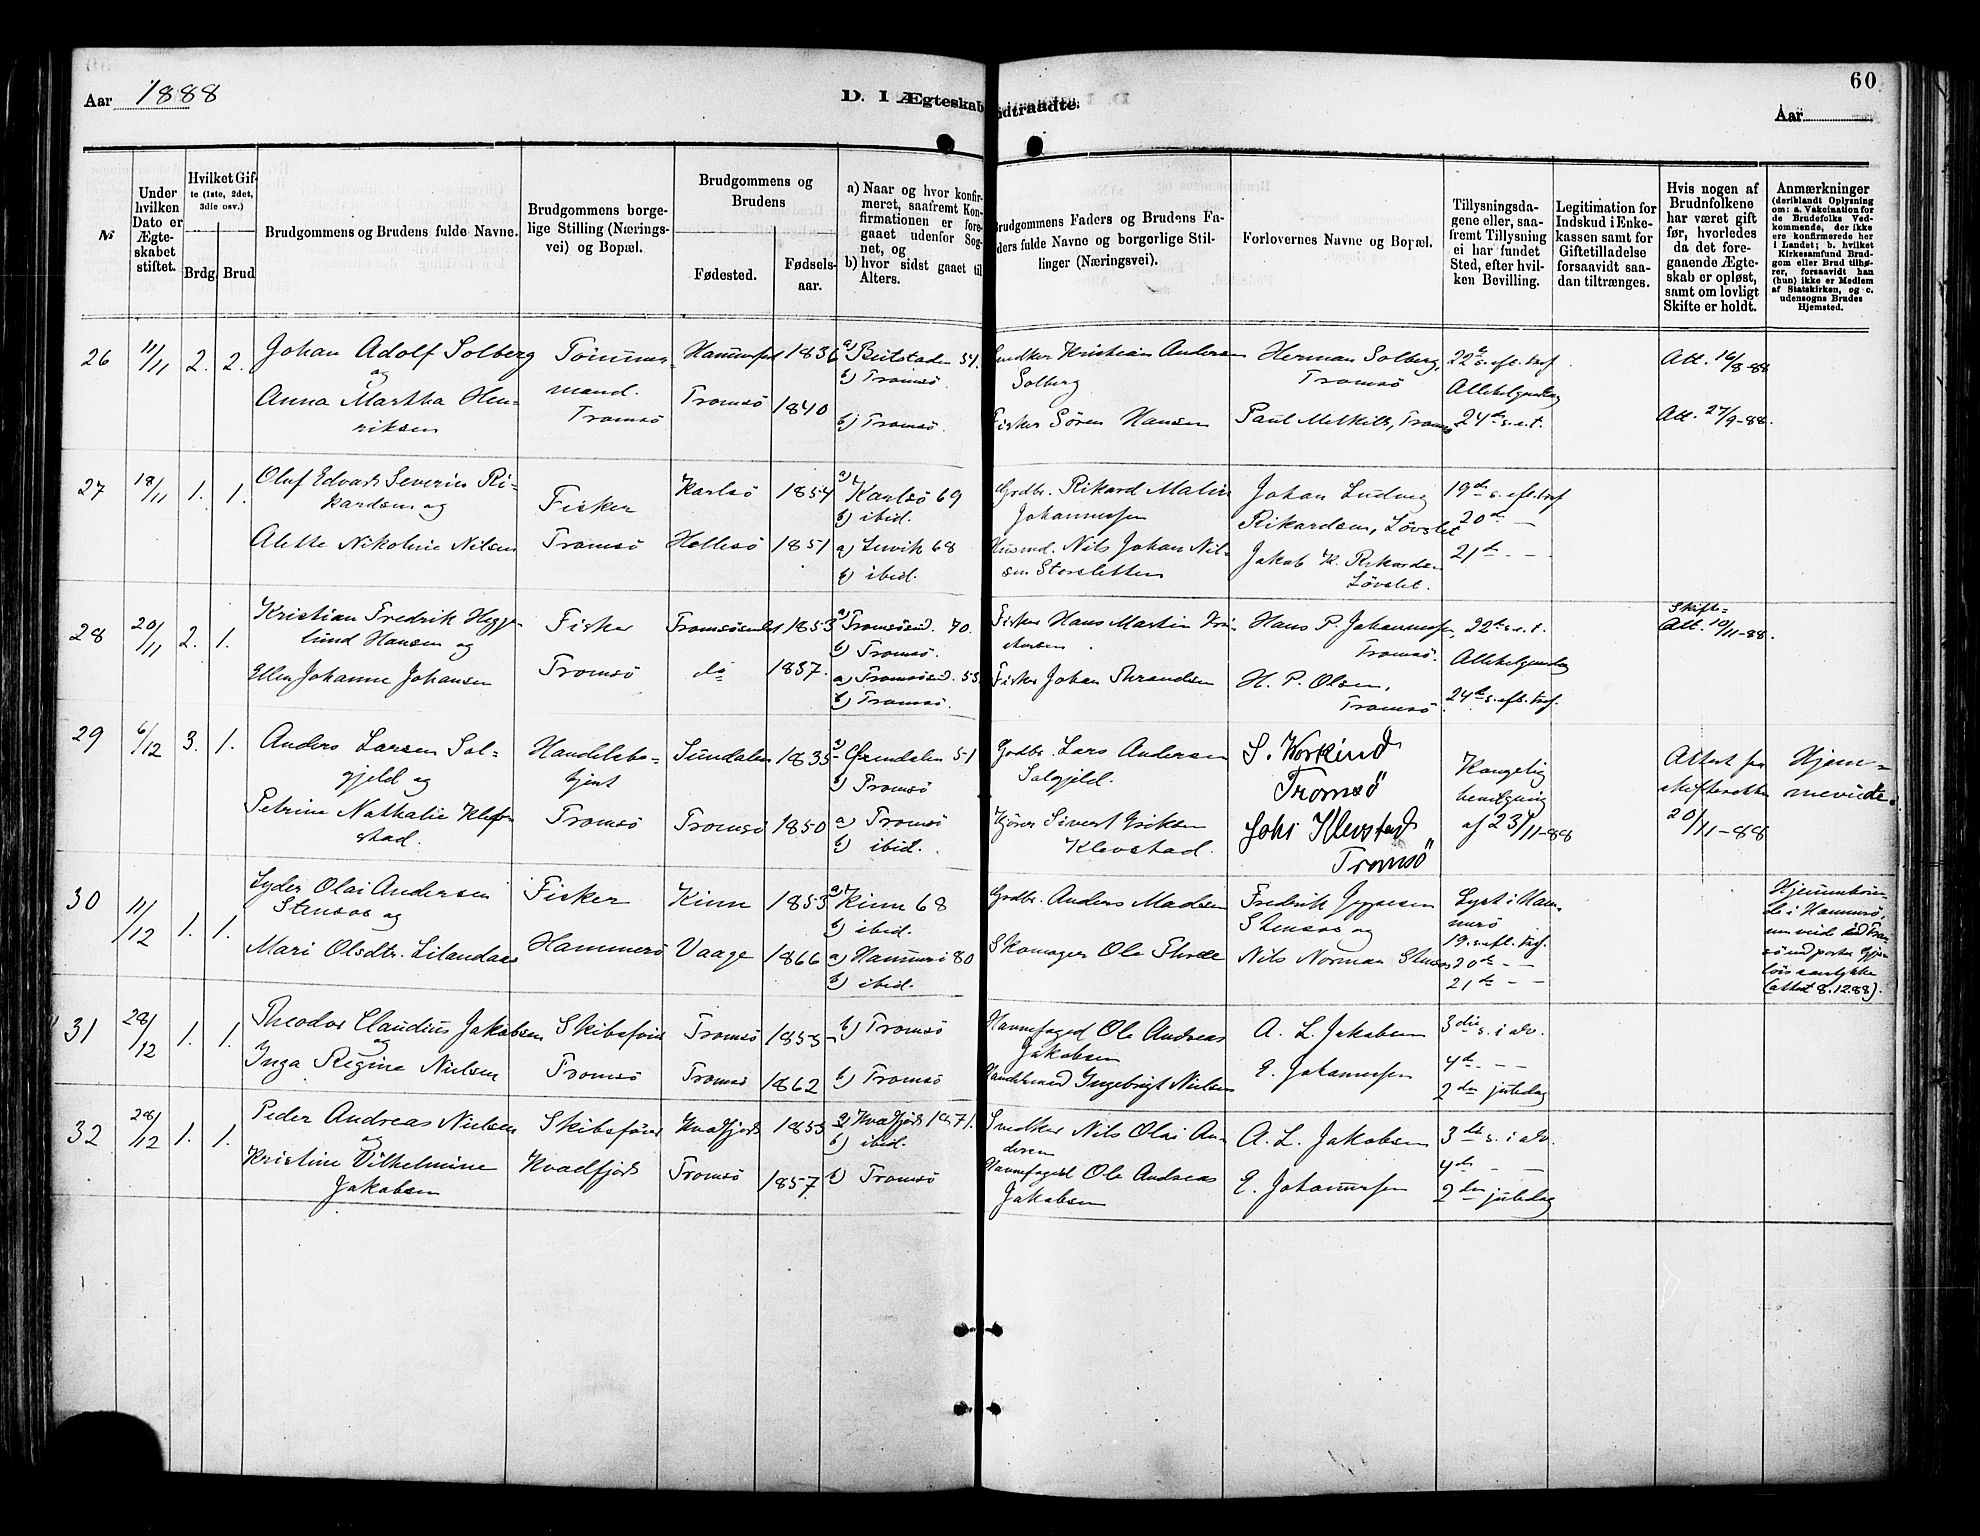 Aar 1888
D. 1 Ægteskab
indtraadte.
60
Aar
№
Under hvilken Dato er Ægteskabet stiftet.
Hvilket Gifte (1ste, 2det, 3die osv.)
Brdg.
Brud
Brudgommens og Brudens fulde Navne.
Brudgommens borgelige Stilling (Næringsvei) og Bopæl.
Brudgommens og Brudens
Fødested.
Fødselsaar.
a) Naar og hvor konfirmeret, saafremt Konfirmationen er foregaaet udenfor Sognet, og
b) hvor sidst gaaet til Alters.
Brudgommens Faders og Brudens Faders fulde Navne og borgerlige Stillinger (Næringsvei).
Forlovernes Navne og Bopæl.
Tillysningsdagene eller, saafremt Tillysning ei har fundet Sted, efter hvilken Bevilling.
Legitimation for Indskud i Enkekassen samt for Giftetilladelse forsaavidt saadan tiltrænges.
Hvis nogen af Brudnfolkene har været gift før, hvorledes da det foregaaende Ægteskab er opløst, samt om lovligt Skifte er holdt.
Anmærkninger (deriblandt Oplysning om: a. Vakcination for de Brudefolks Vedkommende, der ikke ere konfirmerede her i Landet; b. hvilket Kirkesamfund Brudgom eller Brud tilhører, forsaavidt han (hun) ikke er Medlem af Statskirken, og c. udensogns Brudes Hjemsted.
26 11/11 2. 2. Johan Adolf Solberg
og
Anna Martha Hen-
riksen
Tømmer-
mand.
Tromsö
Hammerfest 1836
Tromsö 1840
a) Beitstaden 51.
b) Tromsö
b) Tromsö.
Snedker Kristian Andersen
Solberg
Fisker Sören Hansen
Herman Solberg,
Tromsö
Paul Melkild, Tromsö
22de s. eft. tref
Allehelgensdag
24de s. e. t.
Att. 16/8-88
Att. 27/9-88.
27 18/11 1. 1. Oluf Edvard Severin Ri-
kardsen og
Alette Nikoline Nilsen
Fisker
Tromsö
Karlsö 1854
Hellesö 1851
a) Karlsö 69
b) ibid.
a) Lenvik 68
b) ibid.
Gardbr. Rikard Malin
Johannessen
Husmd. Nils Johan Nil-
sen Storsletten
Johan Ludvig
Rikardsen, Lövslet
Jakob K. Rikardsen
Lövslet.
19de s. eft. tref
20de —
21de - -
28 20/11 2. 1. Kristian Fredrik Hegge-
lund Hansen og
Ellen Johanne Johansen
Fisker
Tromsö
Tromsösundet 1853
do 1857.
a) Tromsösd. 70.
b) Tromsö.
a) Tromsösd. 55.
b) Tromsö.
Fisker Hans Martin Kri-
stensen
Fisker Johan Thrandsen
Hans P. Johannessen,
Tromsö.
H. P. Olsen,
Tromsö.
22de s. e. t.
Allehelgensdag
24de s. eft. tref.
Skifte-
Att. 10/11-88.
29 6/12 3. 1. Anders Larsen Sol-
gjeld og
Petrine Nathalie Klef-
stad.
Handelsbe-
tjent
Tromsö
Sundalen 1835
Tromsö 1850
a) Öxendalen 51
b) Tromsö
a) Tromsö
b) ibid.
Gardbr. Lars Andersen
Solgjeld.
Kjörer Sivert Eriksen
Klevstad.
S. Workind
Tromsö
Johs Klevstad
Tromsö
Kongelig
bevilgning
af 23/11-88
Attest fra
skifteretten
20/11-88
Hjem-
meviede.
30 11/12 1. 1. Lyder Olai Andersen
Stensos og
Mari Olsdtr. Lilandaas
Fisker
Hammerö
Kinn 1853
Vaage 1866
a) Kinn 68
b) ibid.
a) Hammerö 80
b) ibid.
Grdbr. Anders Madsen
Skomager Ole
Fredrik Jeppesen
Stensos og
Nils Norman Stensos
Lyst i Ham-
merö
19. s. eft. tref.
20de - —
21de - -
Hjemmehören-
de i Hammerö,
(attest 8.12.88).
31 28/12 1. 1. Theodor Claudius Jakobsen
og
Inga Regine Nielsen
Skibsförer
Tromsö
Tromsö 1853
Tromsö 1862
b) Tromsö
b) Tromsö
Havnefoged Ole Andreas
Jakobsen
Handelsmand Ingebrigt Nielsen
A. L. Jakobsen
E. Johannessen
3die s. i adv.
4de - - -
2den juledag
32 28/12 1. 1. Peder Andreas Nielsen
og
Kristine Vilhelmine
Jakobsen
Skibsförer
Kvædfjord
Kvædfjord 1853
Tromsö 1857
a) Kvædfjord 1871.
b) ibid.
b) Tromsö
Snedker Nils Olai An-
dersen
Havnefoged Ole Andreas
Jakobsen
A. L. Jakobsen
E. Johannessen
3die s. i adv.
4de - —
2den juledag